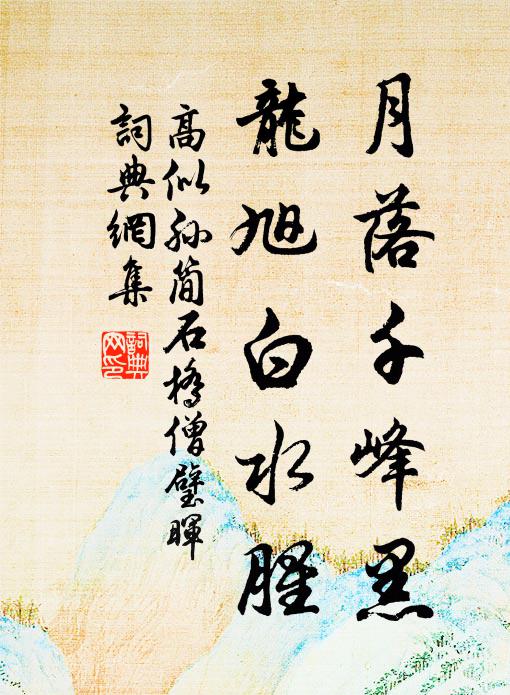 月落千峰黑
龍旭白水腥
高似孫簡石橋僧璧暉
詞典網集
詞典
网印